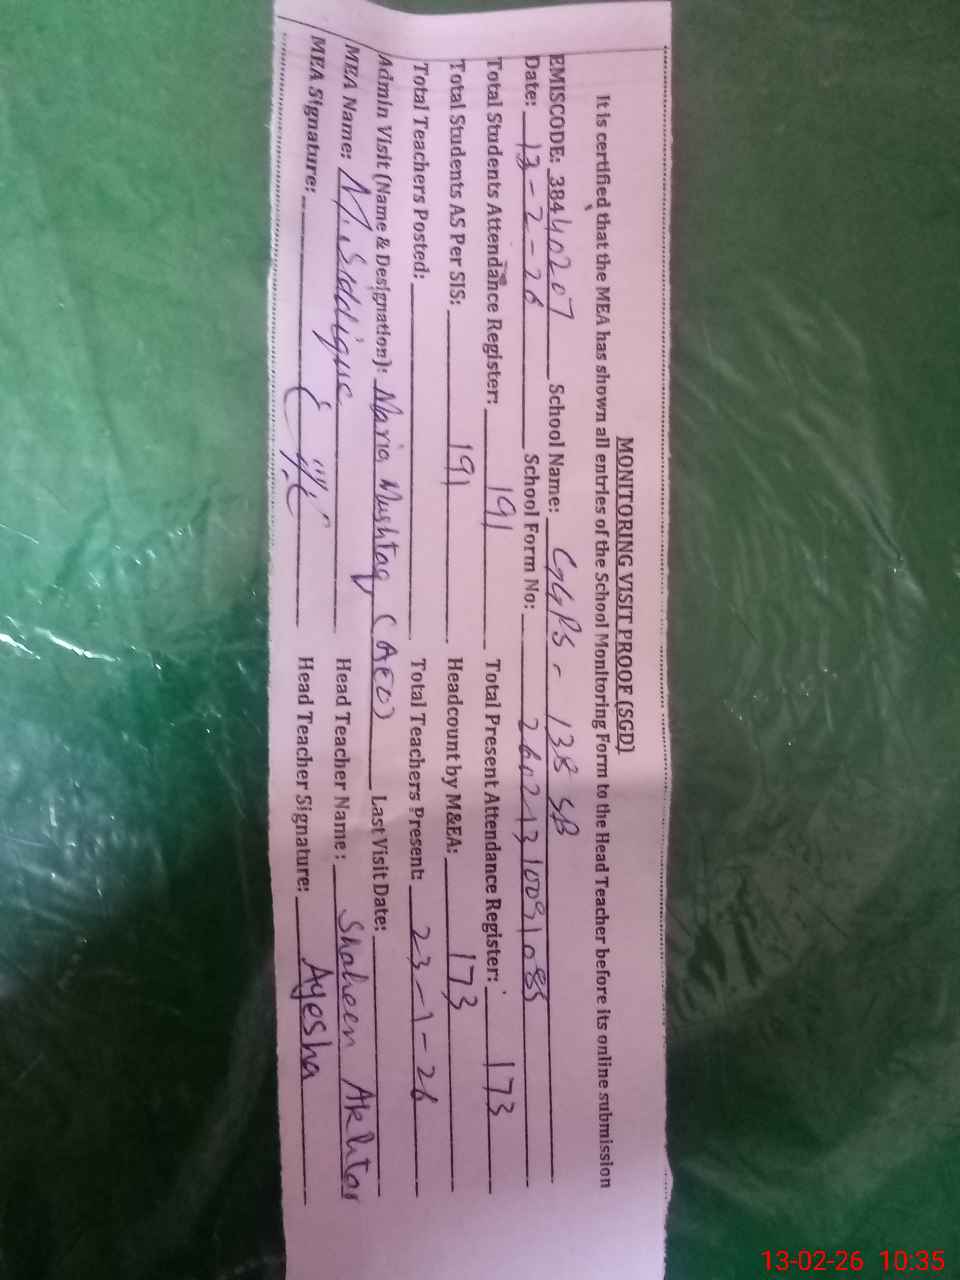 MONITORING VISIT PROOF (SGD)
It is certified that the MEA has shown all entries of the School Monitoring Form to the Head Teacher before its online submission
EMISCODE: 38440207 School Name: GGPS - 138 SB
Date: 13-2-26 School Form No: 26021310091085
Total Students Attendance Register: 191 Total Present Attendance Register: 173
Total Students AS Per SIS: 191 Headcount by M&EA: 173
Total Teachers Posted: Total Teachers Present: 23-1-26
Admin Visit (Name & Designation): Maria Mushtaq (AEO) Last Visit Date:
MEA Name: M. Siddique Head Teacher Name: Shaheen Akhtar
MEA Signature: Head Teacher Signature: Ayesha
13-02-26 10:35